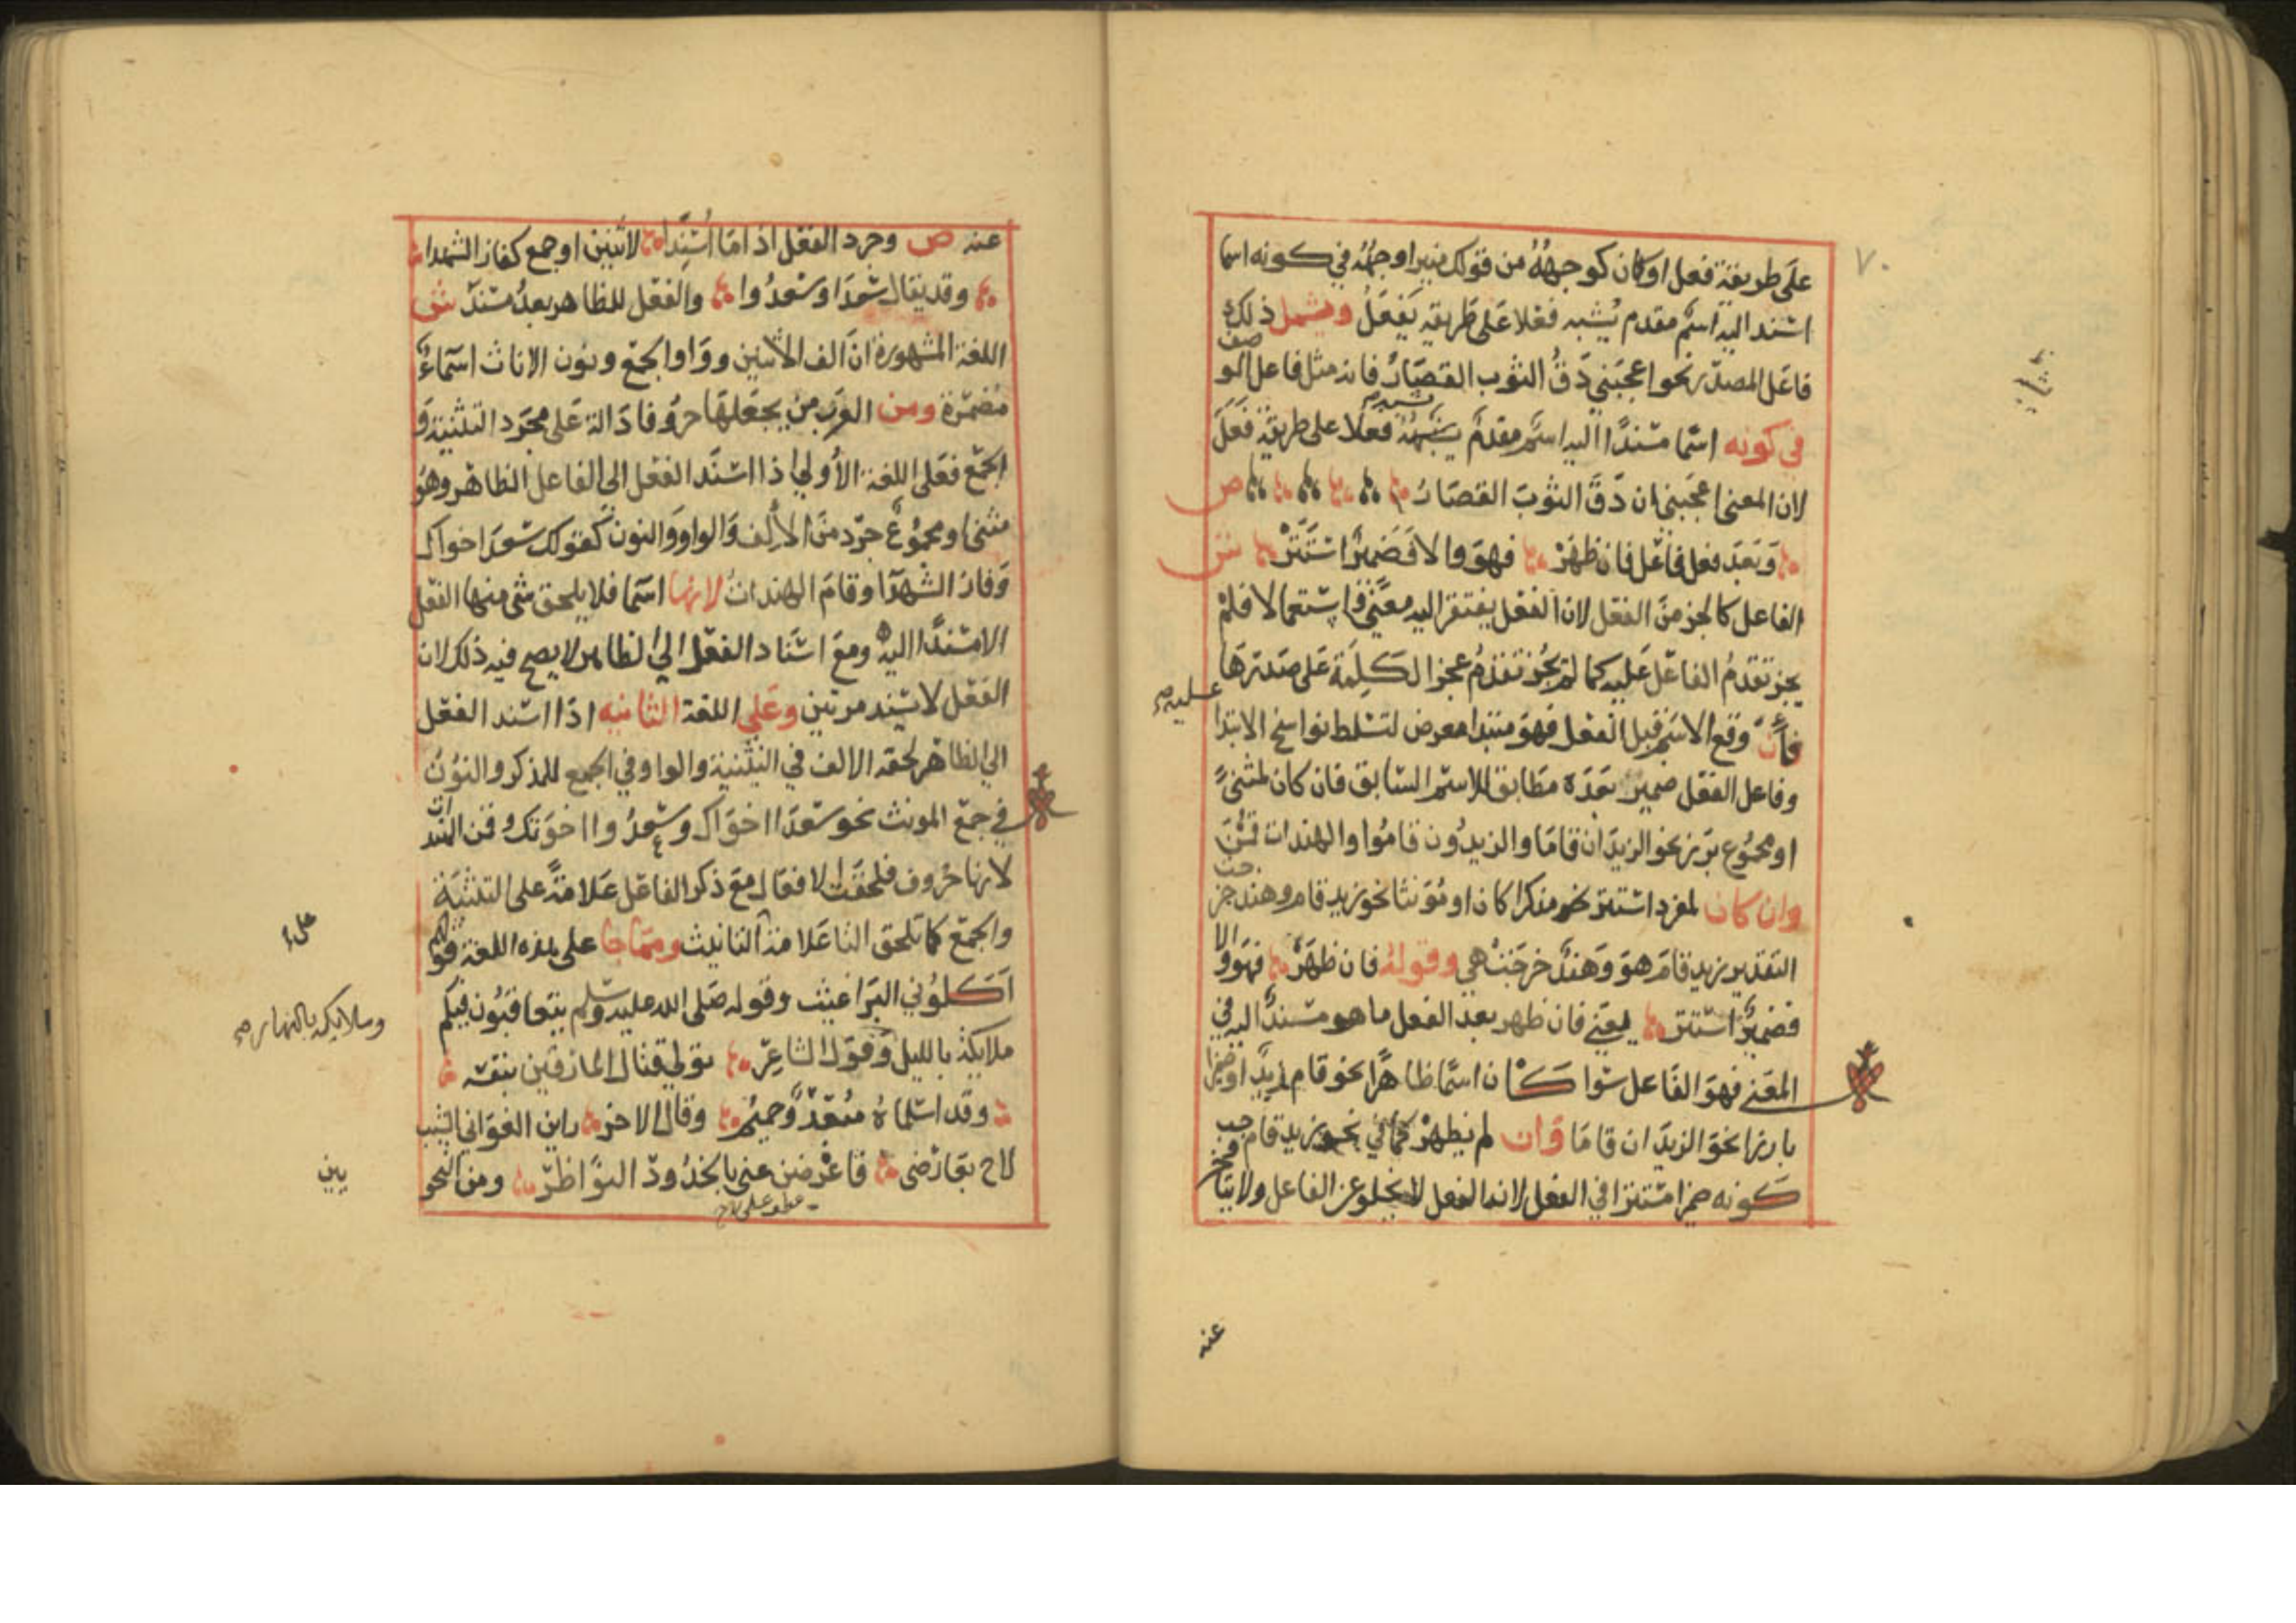 ٧٠
على طريقة فعل او كان كوجهه من قولك منير اوجهه في كونه اسما
اسند اليه اسم مقدم يشبه فعلا على طريقه يفعل ويشمل ذلك
فاعل المصدر نحو اعجبني دق الثوب القصار فانه مثل فاعل الوصف
في كونه اسما مسندا اليه اسم مقدم يشبه فعلا على طريقة فعل
لان المعنى اعجبني ان دق الثوب القصار ص
وبعد فعل فاعل فان ظهر فهو والا فضمير استتر ش
الفاعل كالجز من الفعل لان الفعل يفتقر اليه معنى واستعمالا فلم
يجز تقدم الفاعل عليه كما لم يجز تقدم عجز الكلمة على صدرها
عليه صح
فان وقع الاسم قبل الفعل فهو مبتدا معرض لتسلط نواسخ الابتدا
وفاعل الفعل ضمير بعده مطابق للاسم السابق فان كان لمثنى
او مجموع برز نحو الزيدان قاما والزيدون قاموا والهندات قمن
وان كان لمفرد استتر مذكرا كان او مؤنثا نحو زيد قام وهند خرجت
التقدير زيد قام هو وهند خرجت هي وقوله فان ظهر فهو والا
فضمير استتر يعني فان ظهر بعد الفعل ما هو مسند اليه في
المعنى فهو الفاعل سوا كان اسما ظاهرا نحو قام زيد او ضميرا
بارزا نحو الزيدان قاما وان لم يظهر كما في نحو زيد قام وجب
كونه ضميرا مستترا في الفعل لان الفعل لا يخلو عن الفاعل ولا يتاخر
عنه
عنه ص وجرد الفعل اذا ما اسندا لاثنين او جمع كفاز الشهدا
وقد يقال سعدا وسعدوا والفعل للظاهر بعد مسند ش
اللغة المشهورة ان الف الاثنين وواو الجمع ونون الاناث اسماء
مضمرة ومن العرب من يجعلها حروفا دالة على مجرد التثنية و
الجمع فعلى اللغة الاولى اذا اسند الفعل الى الفاعل الظاهر وهو
مثنى او مجموع جرد من الالف والواو والنون كقولك سعد اخواك
وفاز الشهدا وقام الهندات لانها اسما فلا يلحق شي منها الفعل
الا مسندا اليه ومع اسناد الفعل الى الظاهر لا يصح فيه ذلك لان
الفعل لا يسند مرتين وعلى اللغة الثانيه اذا اسند الفعل
الى الظاهر لحقه الالف في التثنية والواو في الجمع للمذكر والنون
في جمع المونث نحو سعدا اخواك وسعدوا اخوتك وقمن الهندات
لانها حروف فلحقت الافعال مع ذكر الفاعل علامة على التثنية
والجمع كما تلحق التا علامة التانيث ومما جا على هذه اللغة قولهم
اكلوني البراغيث وقوله صلى الله عليه وسلم يتعاقبون فيكم
ملايكة بالليل وقول الشاعر تولى قتال المارقين بنفسه
وملايكة بالنهار صح
وقد اسلماه مبعد وحميم وقال الاخر راين الغواني الشيب
لاح بعارضي فاعرضن عني بالخدود النواظر ومن النحو
عطف على لاح
يين